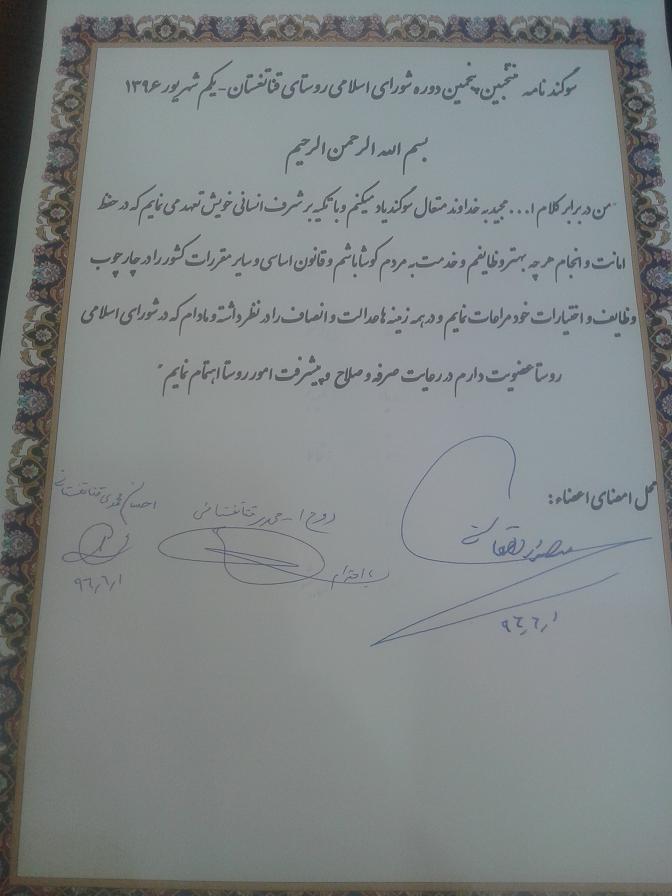 سوگندنامه منتخبین پنجمین دوره شورای اسلامی روستای قناتغستان - یکم شهریور ۱۳۹۶
بسم الله الرحمن الرحیم
"من در برابر کلام ا... مجید به خداوند متعال سوگند یاد میکنم و با تکیه بر شرف انسانی خویش تعهد می نمایم که در حفظ
امانت و انجام هر چه بهتر وظایفم و خدمت به مردم کوشا باشم و قانون اساسی و سایر مقررات کشور را در چارچوب
وظایف و اختیارات خود مراعات نمایم و در همه زمینه ها عدالت و انصاف را در نظر داشته و مادام که در شورای اسلامی
روستا عضویت دارم در رعایت صرفه و صلاح و پیشرفت امور روستا اهتمام نمایم"
محل امضای اعضاء:
منصور
۹۶,۶,۱
روح ا...
با احترام
احسان محمدی قناتغستانی
۹۶,۶,۱